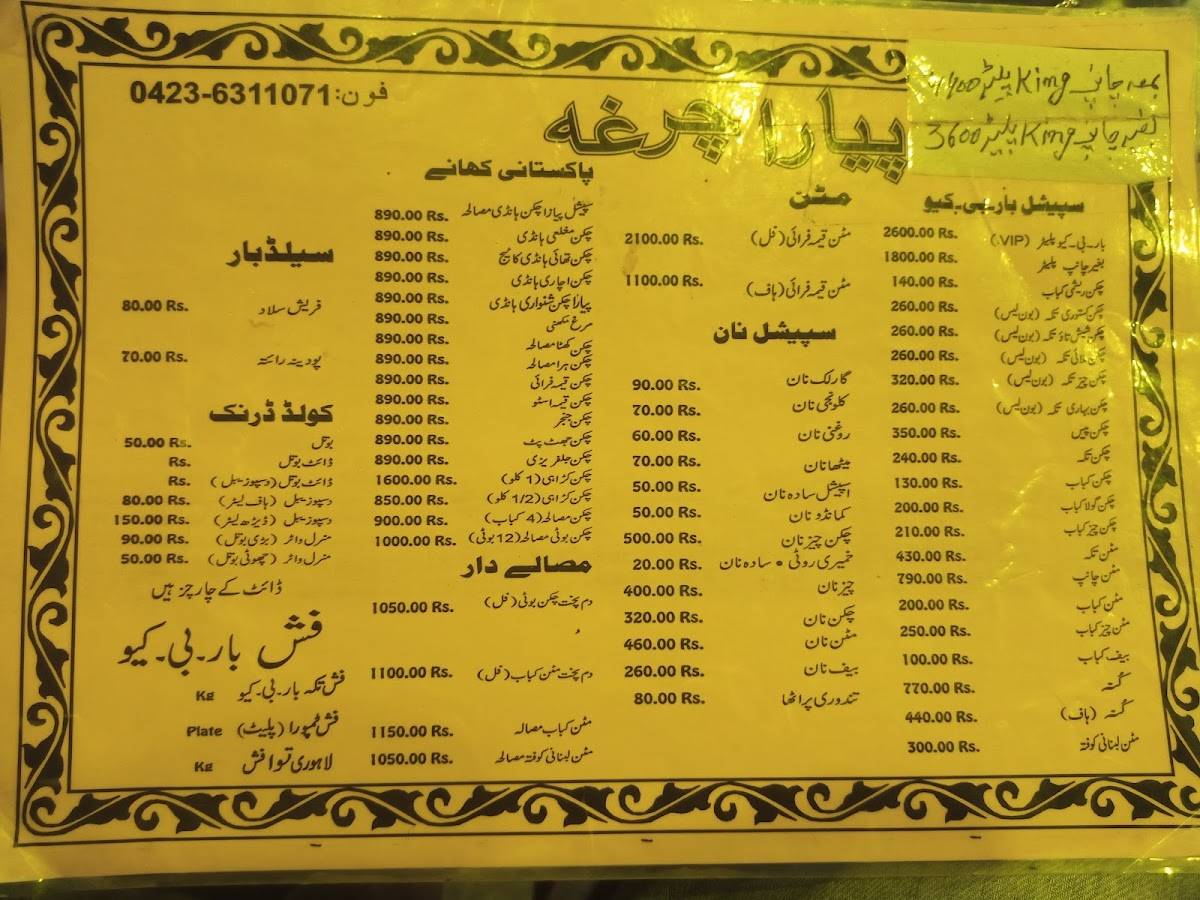 فون: 0423-6311071
پیارا چرغہ
بمعہ چانپ King پلیٹر
بغیر چانپ King پلیٹر 3600
سپیشل بار۔بی۔کیو
بار۔بی۔کیو پلیٹر (VIP) 2600.00 Rs.
بغیر چانپ پلیٹر 1800.00 Rs.
چکن ریشمی کباب 140.00 Rs.
چکن کستوری تکہ (بون لیس) 260.00 Rs.
چکن شیش تاؤ تکہ (بون لیس) 260.00 Rs.
چکن ملائی تکہ (بون لیس) 260.00 Rs.
چکن چیز تکہ (بون لیس) 320.00 Rs.
چکن بہاری تکہ (بون لیس) 260.00 Rs.
چکن پیس 350.00 Rs.
چکن تکہ 240.00 Rs.
چکن کباب 130.00 Rs.
چکن گولا کباب 200.00 Rs.
چکن چیز کباب 210.00 Rs.
مٹن تکہ 430.00 Rs.
مٹن چانپ 790.00 Rs.
مٹن کباب 200.00 Rs.
مٹن چیز کباب 250.00 Rs.
بیف کباب 100.00 Rs.
کُنہ 770.00 Rs.
کُنہ (ہاف) 440.00 Rs.
مٹن لبنانی کوفتہ 300.00 Rs.
مٹن
مٹن قیمہ فرائی (فل) 2100.00 Rs.
مٹن قیمہ فرائی (ہاف) 1100.00 Rs.
سپیشل نان
گارلک نان 90.00 Rs.
کلونجی نان 70.00 Rs.
روغنی نان 60.00 Rs.
میٹھا نان 70.00 Rs.
اسپیشل سادہ نان 50.00 Rs.
کمانڈو نان 50.00 Rs.
چکن چیز نان 500.00 Rs.
خمیری روٹی • سادہ نان 20.00 Rs.
چیز نان 400.00 Rs.
چکن نان 320.00 Rs.
مٹن نان 460.00 Rs.
بیف نان 260.00 Rs.
تندوری پراٹھا 80.00 Rs.
پاکستانی کھانے
سپیشل پیارا چکن ہانڈی مصالحہ 890.00 Rs.
چکن مغلئی ہانڈی 890.00 Rs.
چکن تھائی ہانڈی کاٹیج 890.00 Rs.
چکن اچاری ہانڈی 890.00 Rs.
پیارا چکن شنواری ہانڈی 890.00 Rs.
مرغ مکھنی 890.00 Rs.
چکن کھٹا مصالحہ 890.00 Rs.
چکن ہرا مصالحہ 890.00 Rs.
چکن قیمہ فرائی 890.00 Rs.
چکن قیمہ اسٹو 890.00 Rs.
چکن جنجر 890.00 Rs.
چکن جھٹ پٹ 890.00 Rs.
چکن جلفریزی 890.00 Rs.
چکن کڑاہی (1 کلو) 1600.00 Rs.
چکن کڑاہی (1/2 کلو) 850.00 Rs.
چکن مصالحہ (4 کباب) 900.00 Rs.
چکن بوٹی مصالحہ (12 بوٹی) 1000.00 Rs.
مصالے دار
دم پخت چکن بوٹی (فل) 1050.00 Rs.
دم پخت مٹن کباب (فل) 1100.00 Rs.
مٹن کباب مصالہ 1150.00 Rs.
مٹن لبنانی کوفتہ مصالحہ 1050.00 Rs.
سیلڈبار
فریش سلاد 80.00 Rs.
پودینہ رائتہ 70.00 Rs.
کولڈ ڈرنک
بوتل 50.00 Rs.
ڈائٹ بوتل Rs.
ڈائٹ بوتل (ڈسپوزیبل) Rs.
ڈسپوزیبل (ہاف لیٹر) 80.00 Rs.
ڈسپوزیبل (ڈیڑھ لیٹر) 150.00 Rs.
منرل واٹر (بڑی بوتل) 90.00 Rs.
منرل واٹر (چھوٹی بوتل) 50.00 Rs.
ڈائٹ کے چارجز ہیں
فش بار۔بی۔کیو
فش تکہ بار۔بی۔کیو Kg
فش ٹمپورا (پلیٹ) Plate
لاہوری توا فش Kg